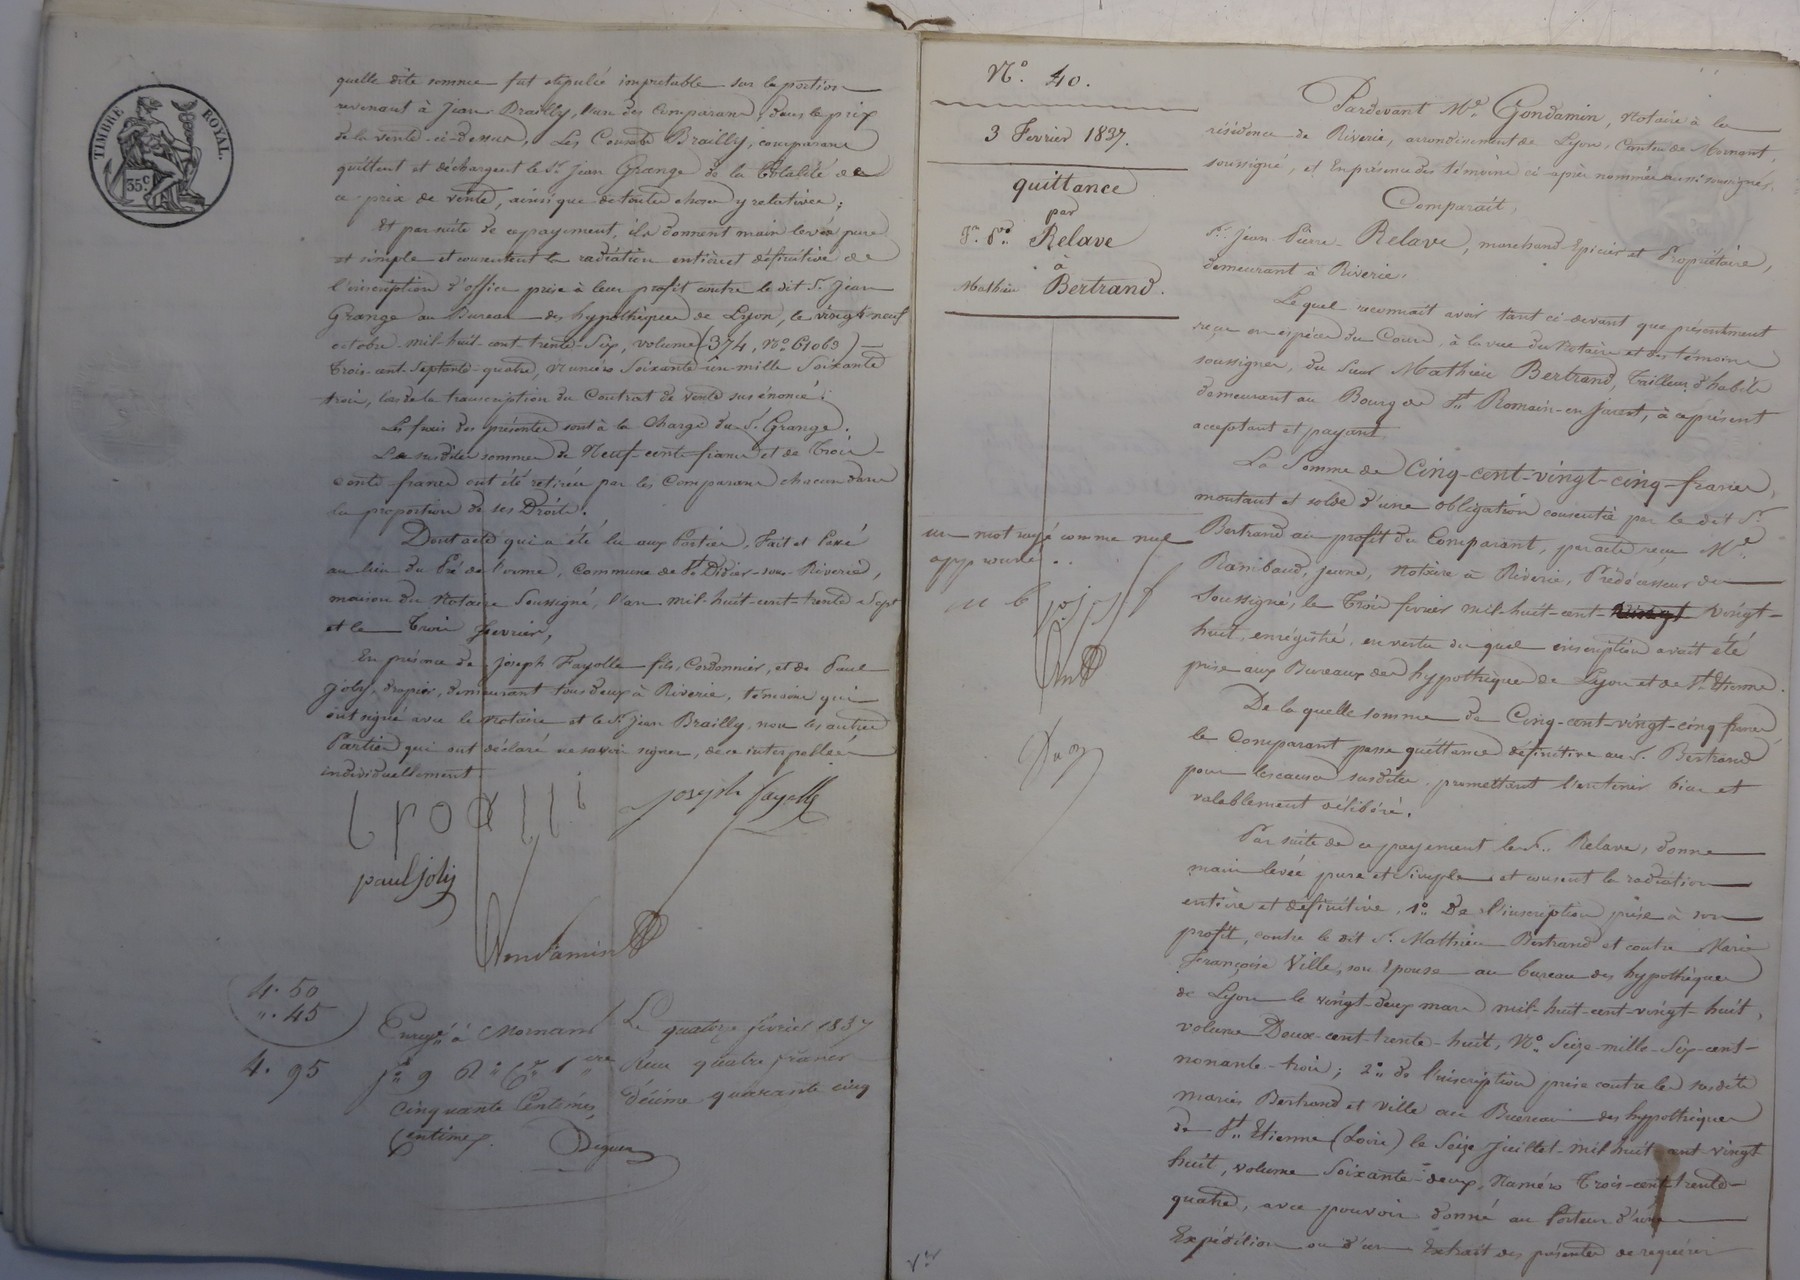 TIMBRE ROYAL.
35c.
quelle dite somme fut stipulée imputable sur la portion
revenant à Jean Brailly, l'un des Comparans, dans le prix
de la vente ci-dessus, Les Consorts Brailly, comparans
quittent et déchargent le Sr. Jean Grange de la totalité de
ce prix de vente, ainsi que de toutes choses y relatives;
Et par suite de ce payement, ils donnent main levée pure
et simple et consentent la radiation entière et définitive de
l'inscription d'office prise à leur profit contre le dit Sr. Jean
Grange au Bureau des hypothèques de Lyon, le vingt neuf
octobre mil-huit-cent-trente-six, volume (374, No. 61063)
Trois-cent-septante-quatre, numéro soixante-un-mille soixante
trois, lors de la transcription du Contrat de vente sus énoncé.
Les frais des présentes sont à la charge du Sr. Grange.
Les susdites sommes de Neuf-cents-francs et de Trois-
cents-francs ont été retirées par les Comparans chacun dans
la proportion de ses Droits.
Dont acte qui a été lu aux Parties, Fait et Passé
au lieu du Pré de l'orme, Commune de St. Didier-sous-Riverie,
maison du Notaire Soussigné, l'an mil-huit-cent-trente-sept
et le Trois février,
En présence de Joseph Fayolle fils, Cordonnier, et de Paul
Joly, drapier, demeurant tous deux à Riverie, témoins qui
ont signé avec le Notaire et le Sr. Jean Brailly, non les autres
Parties qui ont déclaré ne savoir signer, de ce interpellées
individuellement.
Joseph fayolle
paul joly
Gondamin
4. 50
". 45
4. 95
Enregé. à Mornant Le quatre février 1837
fo. 9 Ro. Ce. 1ere Reçu quatre francs
cinquante Centimes, Décime quarante cinq
centimes.
No. 40.
3 Fevrier 1837.
quittance
par
Jn. Pre. Relave
à
Mathieu Bertrand.
un mot rayé comme nul
approuvé.
Pardevant Me. Gondamin, Notaire à la
résidence de Riverie, arrondissement de Lyon, Canton de Mornant,
soussigné, et En présence des témoins ci-après nommés aussi soussignés,
Comparait,
Sr. Jean Pierre Relave, marchand Epicier et Propriétaire,
demeurant à Riverie.
Lequel reconnait avoir tant ci-devant que présentement
reçu en espèces du Cours, à la vue du Notaire et des témoins
soussignés, du Sieur Mathieu Bertrand, tailleur d'habits
demeurant au Bourg de St. Romain-en-Jarest, à ce présent
acceptant et payant
La Somme de Cinq-cent-vingt-cinq-francs,
montant et solde d'une obligation consentie par le dit Sr.
Bertrand au profit du Comparant, par acte reçu Me.
Raimbaud, jeune, Notaire à Riverie, Prédécesseur du
Soussigné, le Trois février mil-huit-cent- vingt-
huit, enrégistré, en vertu du quel inscription avait été
prise aux Bureaux des hypothèques de Lyon et de St. Etienne.
De la quelle somme de Cinq-cent-vingt-cinq francs
le Comparant passe quittance définitive au Sr. Bertrand
pour les causes susdites, promettant l'en tenir bien et
valablement délibéré.
Par suite de ce payement le Sr. Relave, donne
main levée pure et Simple et consent la radiation
entière et définitive, 1o. De l'inscription prise à son
profit, contre le dit Sr. Mathieu Bertrand et contre Marie
Françoise Ville, son Epouse au bureau des hypothèques
de Lyon le vingt-deux mars mil-huit-cent-vingt-huit,
volume Deux-cent-trente-huit, No. Seize-mille-Six-cent-
nonante-trois; 2o. de l'inscription prise contre les susdits
mariés Bertrand et Ville au Bureau des hypothèques
de St. Etienne (Loire) le Seize Juillet mil huit cent vingt
huit, volume Soixante-deux, Numéro Trois-cent-trente-
quatre, avec pouvoir donné au Porteur d'une
Expédition ou d'un Extrait des présentes de requérir